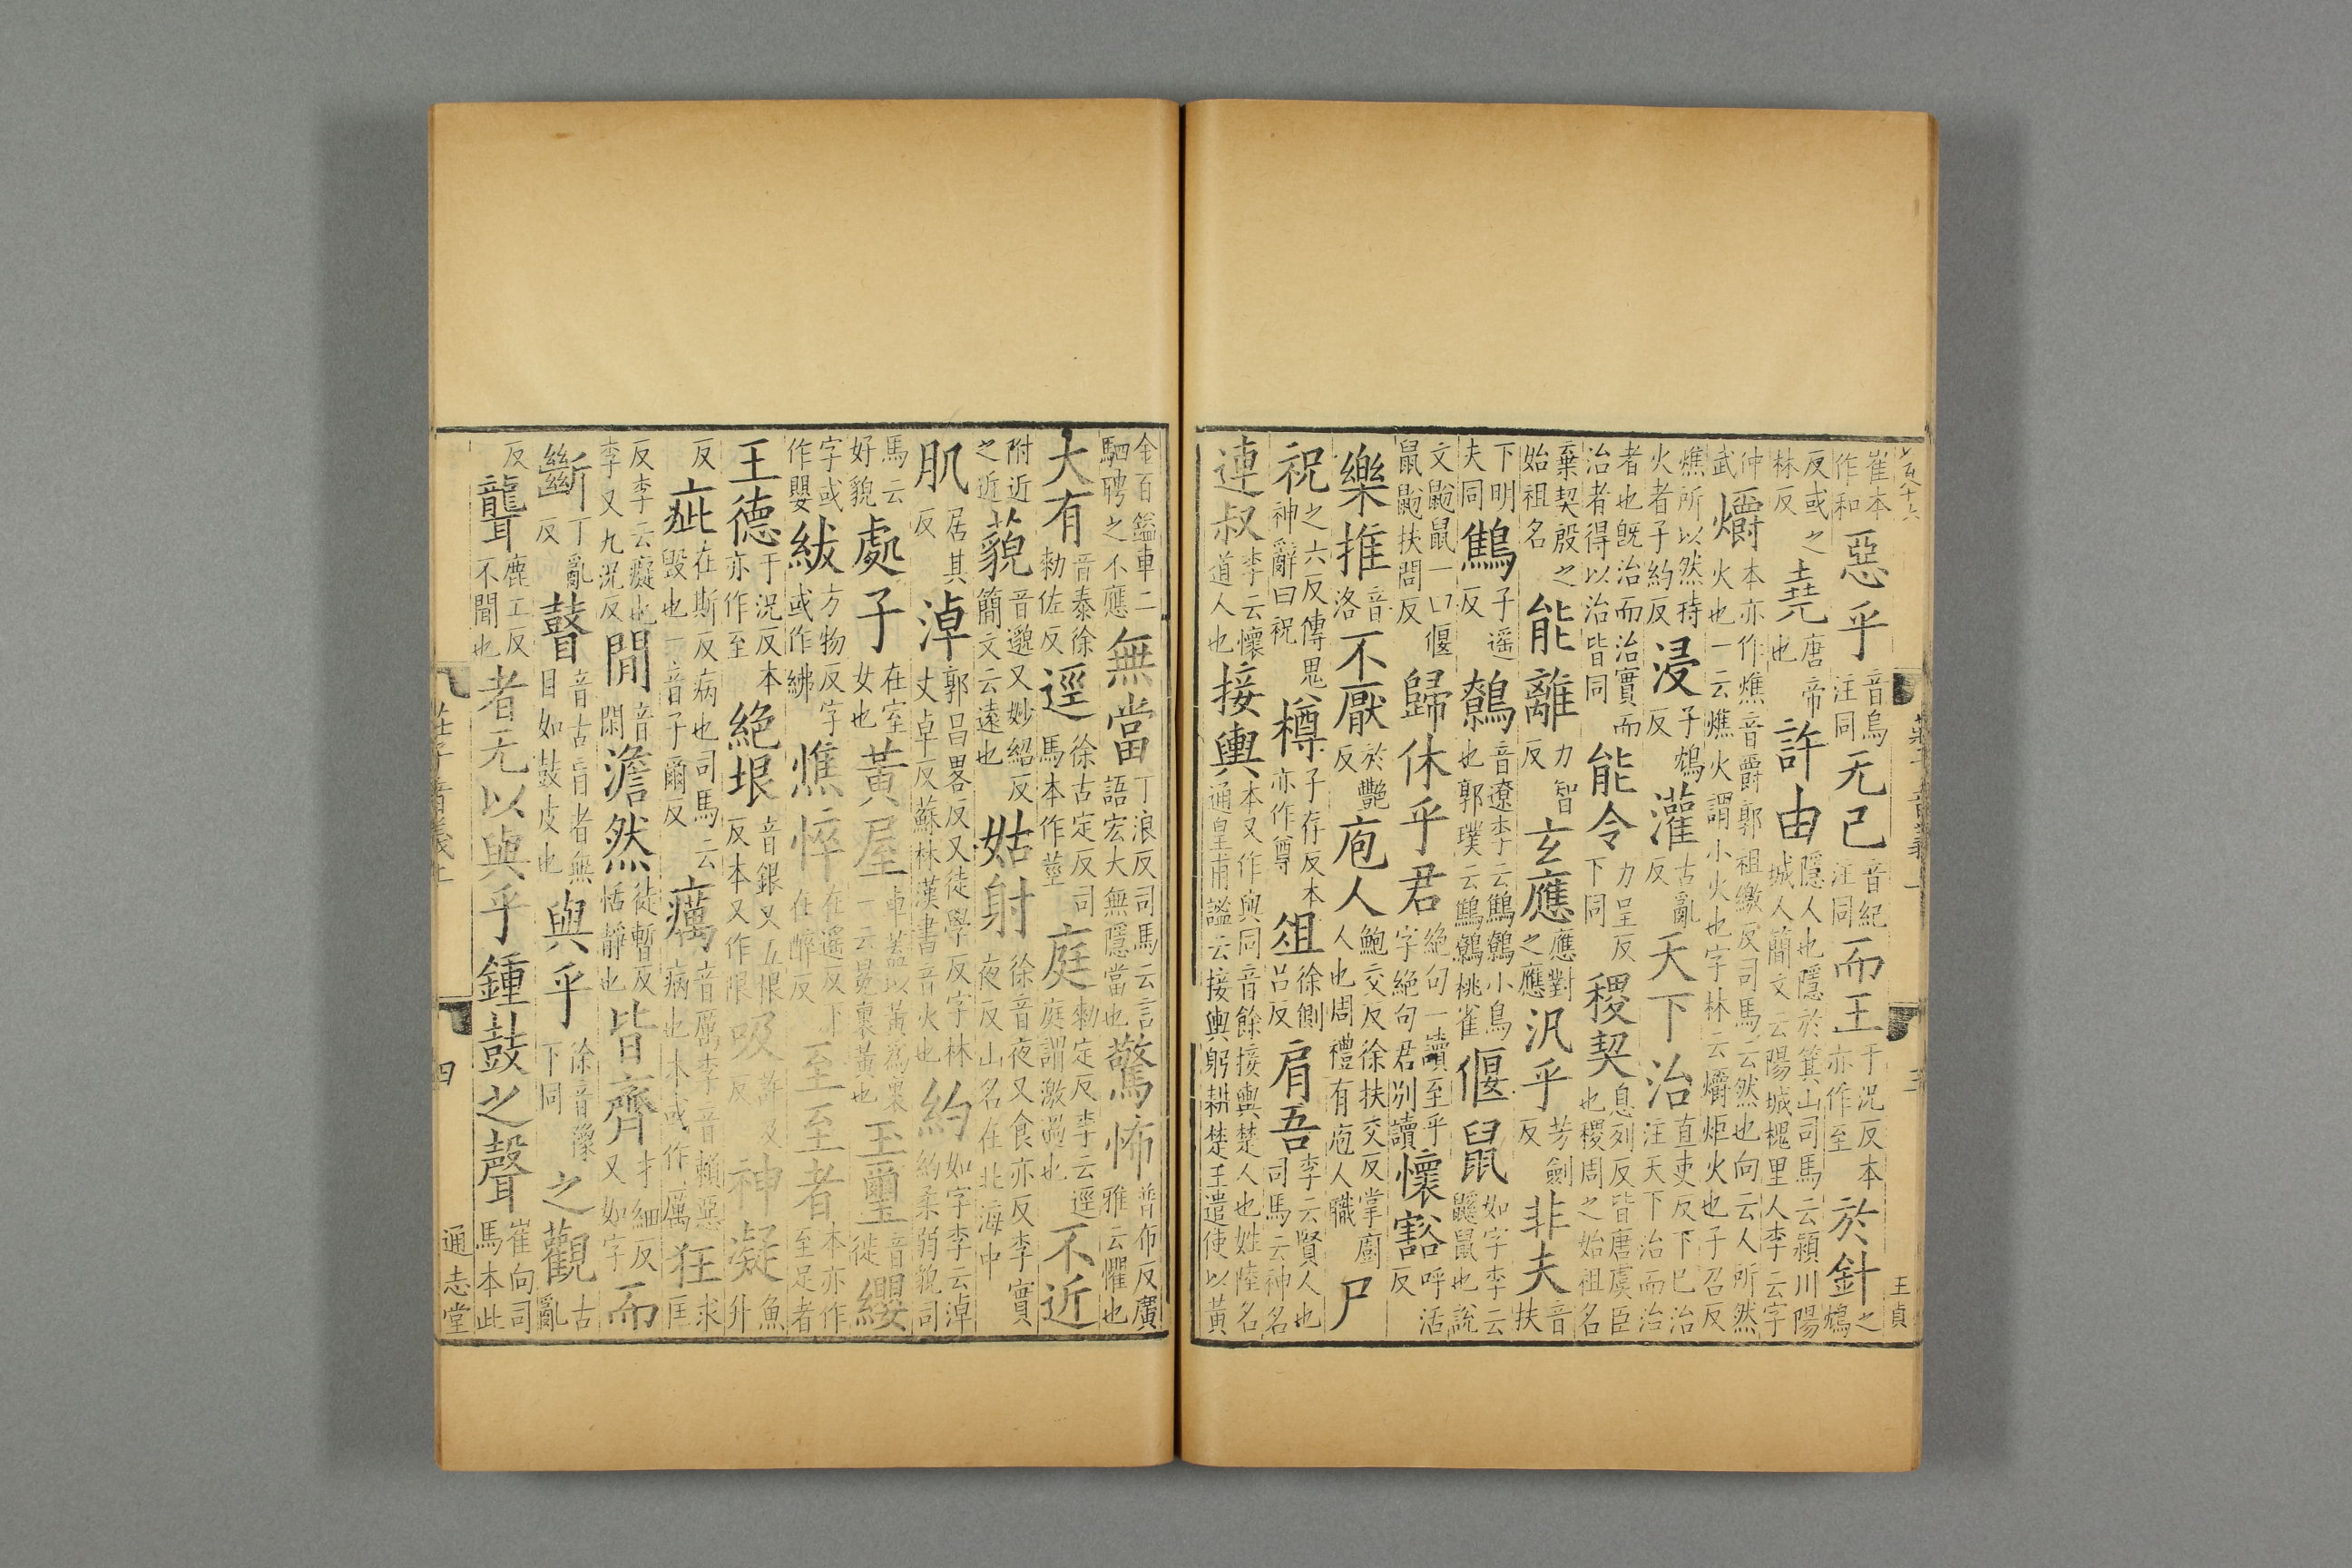 崔本作和惡乎音烏注同无己音紀注同而王于況反本亦作至於針之鴆
反或之林反堯唐帝也許由隱人也隱於箕山司馬云潁川陽城人簡文云陽城槐里人李云字
仲武爝本亦作燋音爵郭祖繳反司馬云然也向云人所然火也一云燋火謂小火也字林云爝炬火也子召反
燋所以然持火者子約反浸子鴆反灌古亂反天下治直吏反下已治注天下治而治
者也旣治而治實而治者得以治皆同能令力呈反下同稷契息列反皆唐虞臣也稷周之始祖名
棄契殷之始祖名能離力智反玄應應對之應汎乎芳劍反非夫音扶
下明夫同鷦子遥反鷯音遼李云鷦鷯小鳥也郭璞云鷦鷯桃雀偃鼠如字李云鼷鼠也說
文鼢鼠一曰偃鼠鼢扶問反歸休乎君絶句一讀至乎字絶句君别讀懷豁呼活反
樂推音洛不厭於艷反庖人鮑交反徐扶交反掌廚人也周禮有庖人職尸
祝之六反傳鬼神辭曰祝樽子存反本亦作尊俎徐側吕反肩吾李云賢人也司馬云神名
連叔李云懷道人也接輿本又作與同音餘接輿楚人也姓陸名通皇甫謐云接輿躬耕楚王遣使以黃
莊子音義一 三 王貞
金百鎰車二駟聘之不應無當丁浪反司馬云言語宏大無隱當也驚怖普布反廣雅云懼也
大有音泰徐勑佐反逕徐古定反司馬本作莖庭勑定反李云逕庭謂激過也不近
附近之近藐音邈又妙紹反簡文云遠也姑射徐音夜又食亦反李實夜反山名在北海中
肌居其反淖郭昌畧反又徒學反字林丈卓反蘇林漢書音火也約如字李云淖約柔弱貌司
馬云好貌處子在室女也黃屋車蓋以黃爲裏一云冕裏黃也玉璽音徙纓
字或作嬰紱方物反字或作紼憔悴在遥反下在醉反至至者本亦作至足者
王德于況反本亦作至絶垠音銀又五恨反本又作限吸許及反神凝魚升
反疵在斯反病也司馬云毁也一音子爾反癘音厲李音賴惡病也本或作厲狂求匡
反李云癡也李又九況反閒音閑澹然徒暫反恬靜也皆齊才細反又如字而
斷丁亂反瞽音古盲者無目如鼓皮也與乎徐音豫下同之觀古亂
反聾鹿工反不聞也者无以與乎鍾鼓之聲崔向司馬本此
莊子音義上 四 通志堂